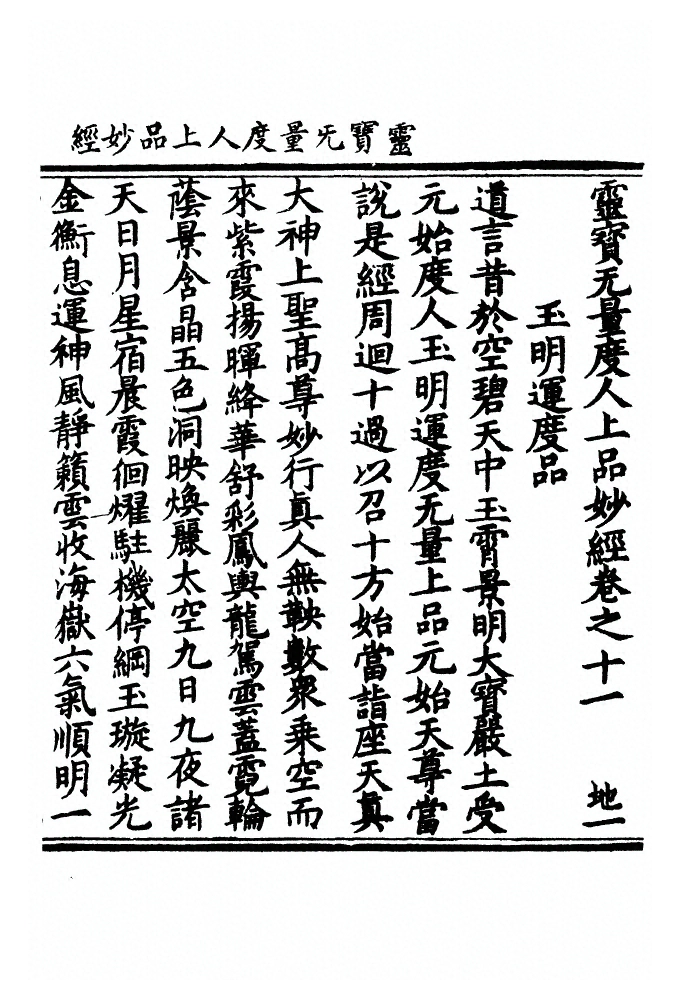 靈寶旡量度人上品妙經
靈寶无量度人上品妙經卷之十一 地一
玉明運度品
道言昔於空碧天中玉霄景明大寶嚴土受
元始度人玉明運度无量上品元始天尊當
說是經周迴十過以召十方始當詣座天眞
大神上聖高尊妙行眞人無鞅數衆乘空而
來紫霞揚暉絳華舒彩鳳輿龍駕雲蓋霓輪
蔭景含晶五色洞映煥麗太空九日九夜諸
天日月星宿晨霞徊燿駐機停綱玉璇凝光
金衡息運神風靜籟雲收海嶽六氣順明一